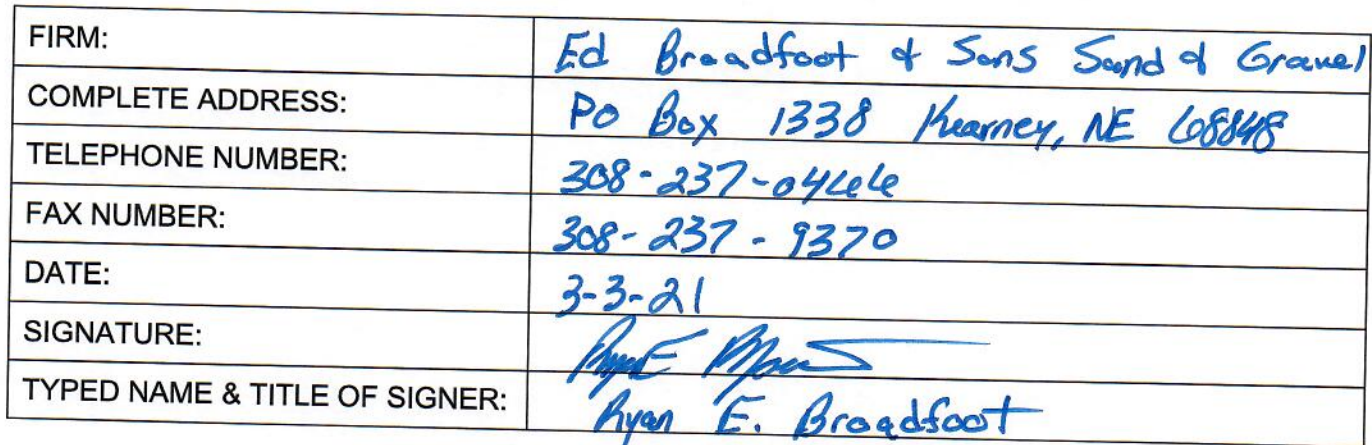 FIRM: Ed Broadfoot & Sons Sand & Gravel
COMPLETE ADDRESS: PO Box 1338 Kearney, NE 68848
TELEPHONE NUMBER: 308-237-0466
FAX NUMBER: 308-237-9370
DATE: 3-3-21
SIGNATURE:
TYPED NAME & TITLE OF SIGNER: Ryan E. Broadfoot